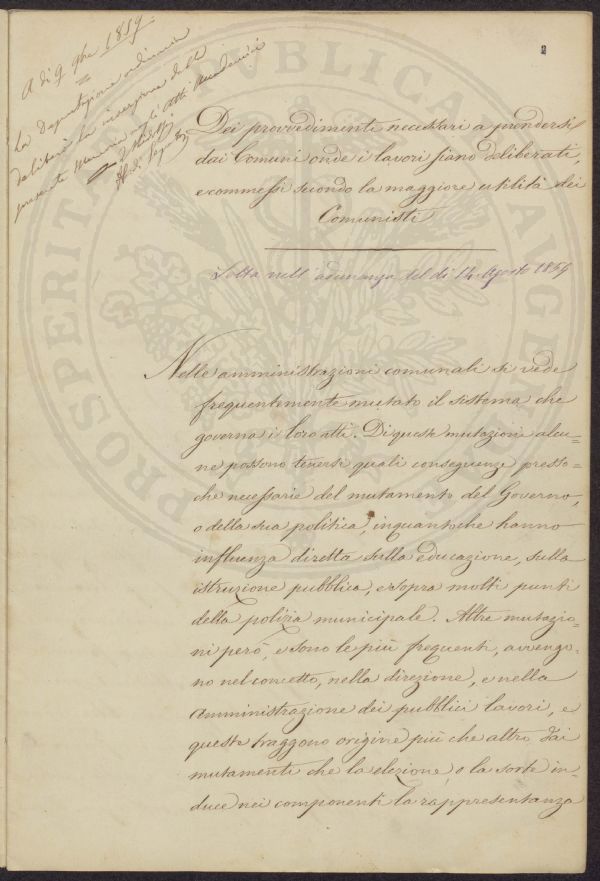 A dì 9 9bre 1859
La Deputazione ordinaria
deliberò la inserzione della
presente Memoria negli Atti Accademici
2
Dei provvedimenti necessari a prendersi
dai Comuni onde i lavori siano deliberati,
e commessi secondo la maggiore utilità dei
Comunisti
Letta nell'adunanza del dì 14 Agosto 1859
Nelle amministrazioni comunali si vede
frequentemente mutato il sistema che
governa i loro atti. Di queste mutazioni alcu=
ne possono tenersi quali conseguenze presso=
che necessarie del mutamento del Governo,
o della sua politica, inquantoche hanno
influenza diretta sulla educazione, sulla
istruzione pubblica, e sopra molti punti
della polizia municipale. Altre mutazio=
ni però, e sono le più frequenti, avvengo=
no nel concetto, nella direzione, e nella
amministrazione dei pubblici lavori, e
queste traggono origine più che altro dai
mutamenti che la elezione, o la sorte in=
duce nei componenti la rappresentanza
PROSPERITAS PUBLICA AUGE